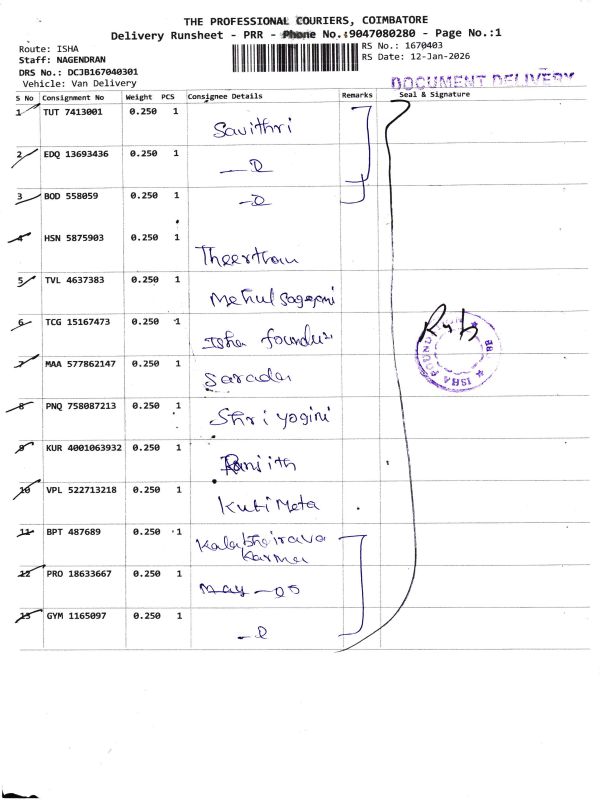 THE PROFESSIONAL COURIERS, COIMBATORE
Delivery Runsheet - PRR - Phone No.:9047080280 - Page No.:1
Route: ISHA
RS No.: 1670403
Staff: NAGENDRAN
RS Date: 12-Jan-2026
DRS No.: DCJB167040301
Vehicle: Van Delivery
DOCUMENT DELIVERY
S No Consignment No Weight PCS Consignee Details Remarks Seal & Signature
1 TUT 7413001 0.250 1 Savithri
2 EDQ 13693436 0.250 1
3 BOD 558059 0.250 1
4 HSN 5875903 0.250 1 Theertham
5 TVL 4637383 0.250 1 Mehul
6 TCG 15167473 0.250 1 Isha
7 MAA 577862147 0.250 1 Sarada
8 PNQ 758087213 0.250 1 Shri yogini
9 KUR 4001063932 0.250 1 Ranjith
10 VPL 522713218 0.250 1 Kuti Meta
11 BPT 487689 0.250 1 Kalabhairava
Karma
12 PRO 18633667 0.250 1
13 GYM 1165097 0.250 1
ISHA FOUNDATION